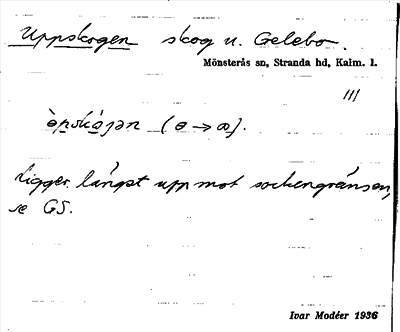 Uppskogen skog u. Gelebo.
Mönsterås sn, Stranda hd, Kalm. l.
111
(ɵ → ꝏ).
Ligger längst upp mot sockengränsen,
se GS.
Ivar Modéer 1936